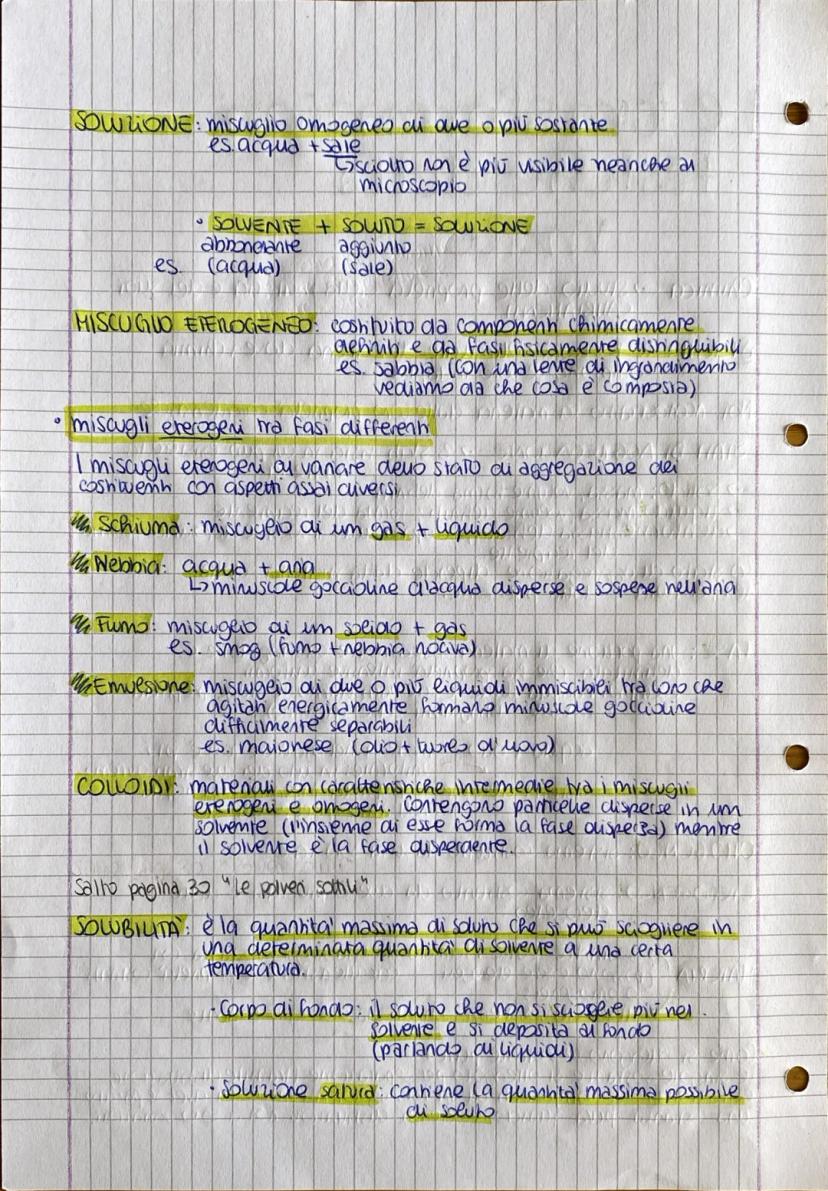 SOLUZIONE: miscuglio omogeneo di due o più sostante
es. acqua + sale
↳ sciolto non è più visibile neanche al
microscopio
• SOLVENTE + SOLUTO = SOLUZIONE
abbondante aggiunto
es. (acqua) (sale)
MISCUGLIO ETEROGENEO: costituito da componenti chimicamente
definiti e da fasi fisicamente distinguibili
es. sabbia (con una lente di ingrandimento
vediamo da che cosa è composta)
• miscugli eterogeni tra fasi differenti
I miscugli eterogeni al variare dello stato di aggregazione dei
costituenti con aspetti assai diversi
Schiuma: miscuglio di un gas + liquido
Nebbia: acqua + aria
↳ minuscole goccioline d'acqua disperse e sospese nell'aria
Fumo: miscuglio di un solido + gas
es. smog (fumo + nebbia nociva)
Emulsione: miscuglio di due o più liquidi immiscibili tra loro che
agitati energicamente formano minuscole goccioline
difficilmente separabili
es. maionese (olio + tuorlo d'uovo)
COLLOIDI: materiali con caratteristiche intermedie tra i miscugli
eterogeni e omogeni. Contengono particelle disperse in un
solvente (l'insieme di esse forma la fase dispersa) mentre
il solvente è la fase disperdente.
Salto pagina 30 "Le polveri sottili"
SOLUBILITA': è la quantita' massima di soluto che si può sciogliere in
una determinata quantita' di solvente a una certa
temperatura.
• Corpo di fondo: il soluto che non si scioglie più nel
solvente e si deposita al fondo
(parlando di liquidi)
• Soluzione satura: contiene la quantita' massima possibile
di soluto